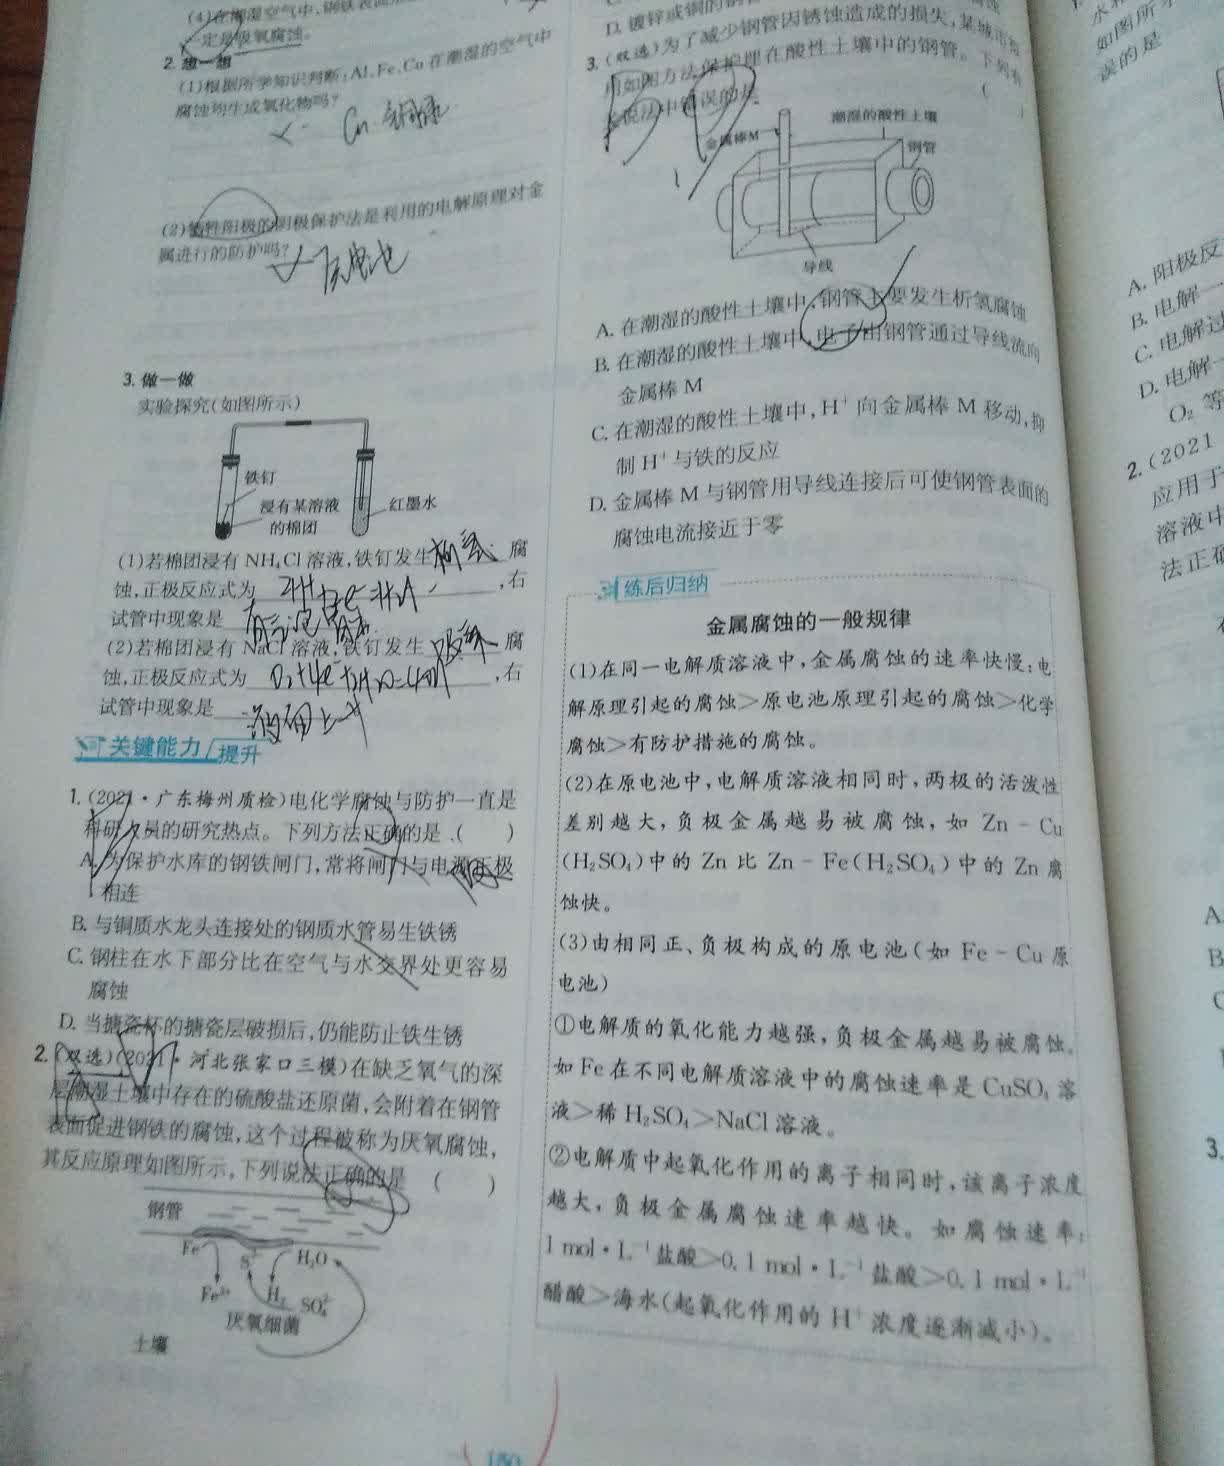 (4)在潮湿空气中,钢铁表面
一定是吸氧腐蚀。
2. 想一想
(1)根据所学知识判断:Al、Fe、Cu 在潮湿的空气中
腐蚀均生成氧化物吗?
Cu 铜绿
(2)牺牲阳极的阴极保护法是利用的电解原理对金
属进行的防护吗?
原电池
3. 做一做
实验探究(如图所示)
铁钉
浸有某溶液
的棉团
红墨水
(1)若棉团浸有 NH₄Cl 溶液,铁钉发生 析氢 腐
蚀,正极反应式为 2H⁺+2e⁻=H₂↑ ,右
试管中现象是 有气泡
(2)若棉团浸有 NaCl 溶液,铁钉发生 吸氧 腐
蚀,正极反应式为 O₂+4e⁻+2H₂O=4OH⁻ ,右
试管中现象是 液面上升
关键能力 提升
1. (2021·广东梅州质检)电化学腐蚀与防护一直是
科研人员的研究热点。下列方法正确的是 ( )
A. 为保护水库的钢铁闸门,常将闸门与电源正极
相连
B. 与铜质水龙头连接处的钢质水管易生铁锈
C. 钢柱在水下部分比在空气与水交界处更容易
腐蚀
D. 当搪瓷杯的搪瓷层破损后,仍能防止铁生锈
2. (双选)(2021·河北张家口三模)在缺乏氧气的深
层潮湿土壤中存在的硫酸盐还原菌,会附着在钢管
表面促进钢铁的腐蚀,这个过程被称为厌氧腐蚀,
其反应原理如图所示,下列说法正确的是 ( )
钢管
Fe
S²⁻
H₂O
Fe²⁺
H₂
SO₄²⁻
厌氧细菌
土壤
150
D. 镀锌或铜的钢管
3. (双选)为了减少钢管因锈蚀造成的损失,某城市拟
用如图方法保护埋在酸性土壤中的钢管。下列有
关说法中错误的是 ( )
潮湿的酸性土壤
金属棒M
钢管
导线
A. 在潮湿的酸性土壤中,钢管主要发生析氢腐蚀
B. 在潮湿的酸性土壤中,电子由钢管通过导线流向
金属棒 M
C. 在潮湿的酸性土壤中,H⁺ 向金属棒 M 移动,抑
制 H⁺ 与铁的反应
D. 金属棒 M 与钢管用导线连接后可使钢管表面的
腐蚀电流接近于零
练后归纳
金属腐蚀的一般规律
(1)在同一电解质溶液中,金属腐蚀的速率快慢:电
解原理引起的腐蚀>原电池原理引起的腐蚀>化学
腐蚀>有防护措施的腐蚀。
(2)在原电池中,电解质溶液相同时,两极的活泼性
差别越大,负极金属越易被腐蚀,如 Zn-Cu
(H₂SO₄)中的 Zn 比 Zn-Fe(H₂SO₄)中的 Zn 腐
蚀快。
(3)由相同正、负极构成的原电池(如 Fe-Cu 原
电池)
①电解质的氧化能力越强,负极金属越易被腐蚀。
如 Fe 在不同电解质溶液中的腐蚀速率是 CuSO₄ 溶
液>稀 H₂SO₄>NaCl 溶液。
②电解质中起氧化作用的离子相同时,该离子浓度
越大,负极金属腐蚀速率越快。如腐蚀速率:
1 mol·L⁻¹ 盐酸>0.1 mol·L⁻¹ 盐酸>0.1 mol·L⁻¹
醋酸>海水(起氧化作用的 H⁺ 浓度逐渐减小)。
如图所示
误的是
A. 阳极反
B. 电解一
C. 电解过
D. 电解一
O₂ 等
2. (2021
应用于
溶液中
法正确
A
B
C
3.